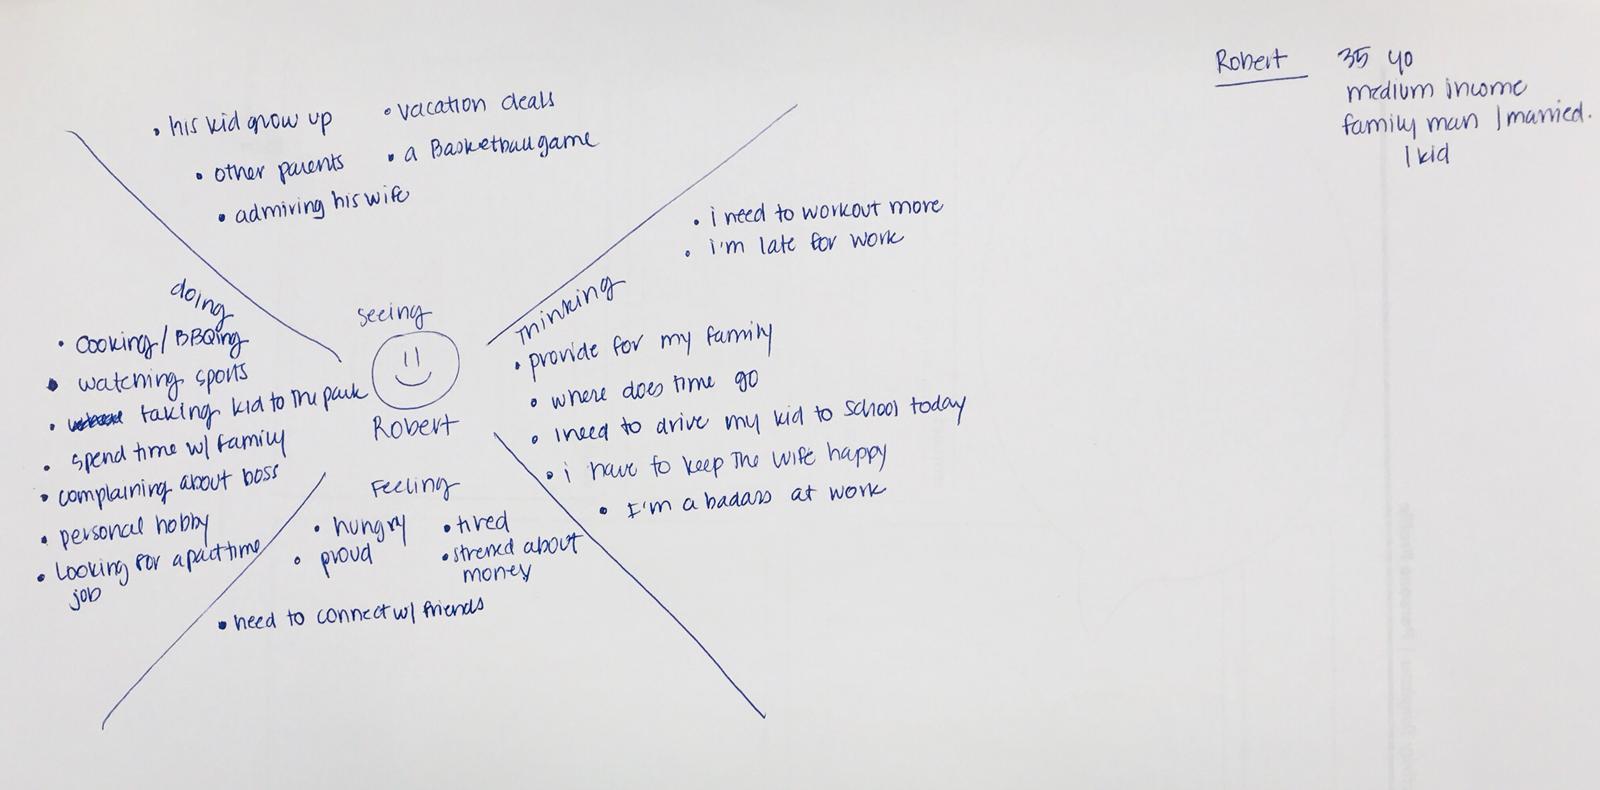 Robert 35 yo
medium income
family man / married.
1 kid
• his kid grow up
• vacation deals
• other parents
• a Basketball game
• admiring his wife
seeing
Robert
Thinking
• i need to workout more
• i'm late for work
• provide for my family
• where does time go
• I need to drive my kid to school today
• i have to keep the wife happy
• I'm a badass at work
doing
• cooking / BBQing
• watching sports
• taking kid to the park
• spend time w/ family
• complaining about boss
• personal hobby
• looking for a part time
job
Feeling
• hungry
• tired
• proud
• stressed about
money
• need to connect w/ friends